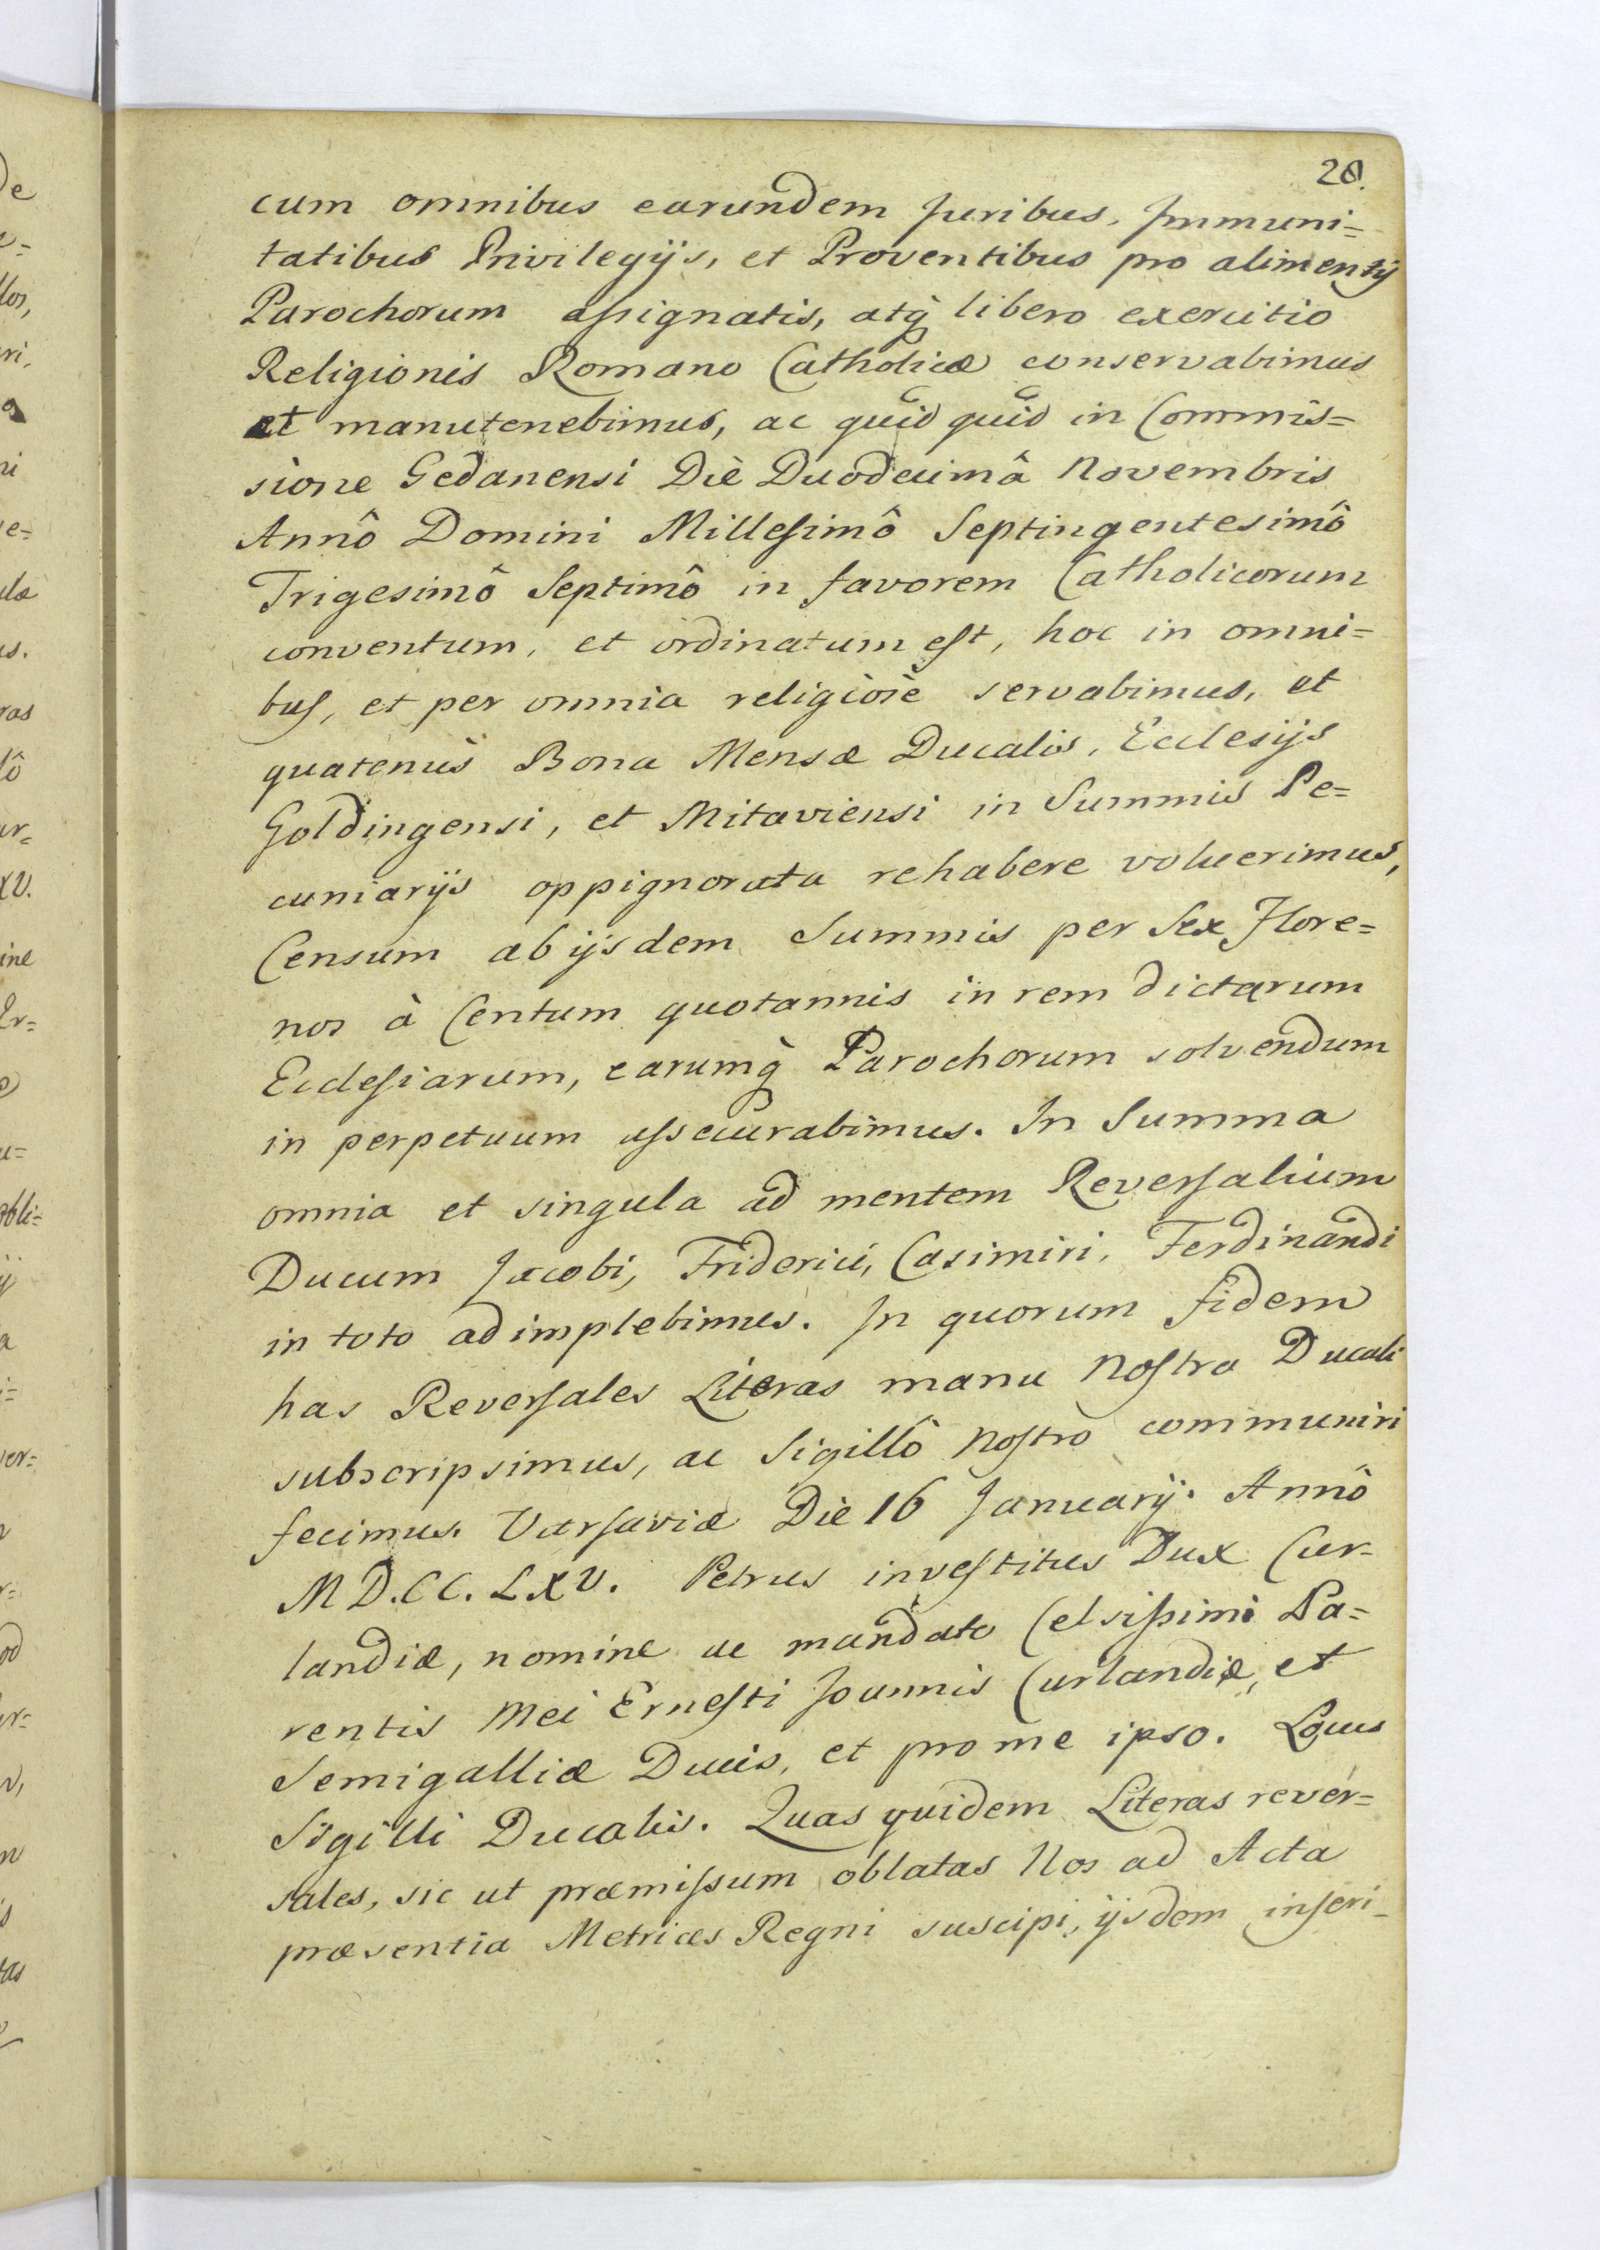 28.
cum omnibus earundem Juribus, Jmmuni=
tatibus Privilegijs, et Proventibus pro alimentij
Parochorum aſsignatis, atq̀ libero exercitio
Religionis Romano Catholicæ conservabimus
et manutenebimus, ac quid quid in Commis=
sione Gedanensi Diè Duodecimâ Novembris
Annô Domini Milleſimô Septingentesimô
Trigesimô Septimô in favorem Catholicorum
conventum, et ordinatum eſt, hoc in omni=
buſ, et per omnia religiosè servabimus, et
quatenùs Bona Mensæ Ducalis, Ecclesijs
Goldingensi, et Mitaviensi in Summis Pe=
cuniarijs oppignorata rehabere voluerimus,
Censum ab ijsdem Summis per Sex Flore=
nos à Centum quotannis in rem dictarum
Eccleſiarum, earumq̀ Parochorum solvendum
in perpetuum aſsecurabimus. In Summa
omnia et singula ad mentem Reverſalium
Ducum Jacobi, Friderici, Casimiri, Ferdinandi
in toto adimplebimus. Jn quorum fidem
has Reverſales Literas manu Noſtra Ducali
subscripsimus, ac Sigillô Noſtro communiri
fecimus. Varſaviæ Diè 16 Januarij. Annô
MD.CC.LXV. Petrus inveſtitus Dux Cur-
landiæ, nomine ac mandato Celsiſsimi Pa=
rentis Mei Erneſti Joannis Curlandiæ, et
Semigalliæ Ducis, et pro me ipso. Locus
Sigilli Ducalis. Quas quidem Literas rever=
sales, sic ut præmiſsum oblatas Nos ad Acta
præsentia Metrices Regni suscipi, ijsdem inſeri-